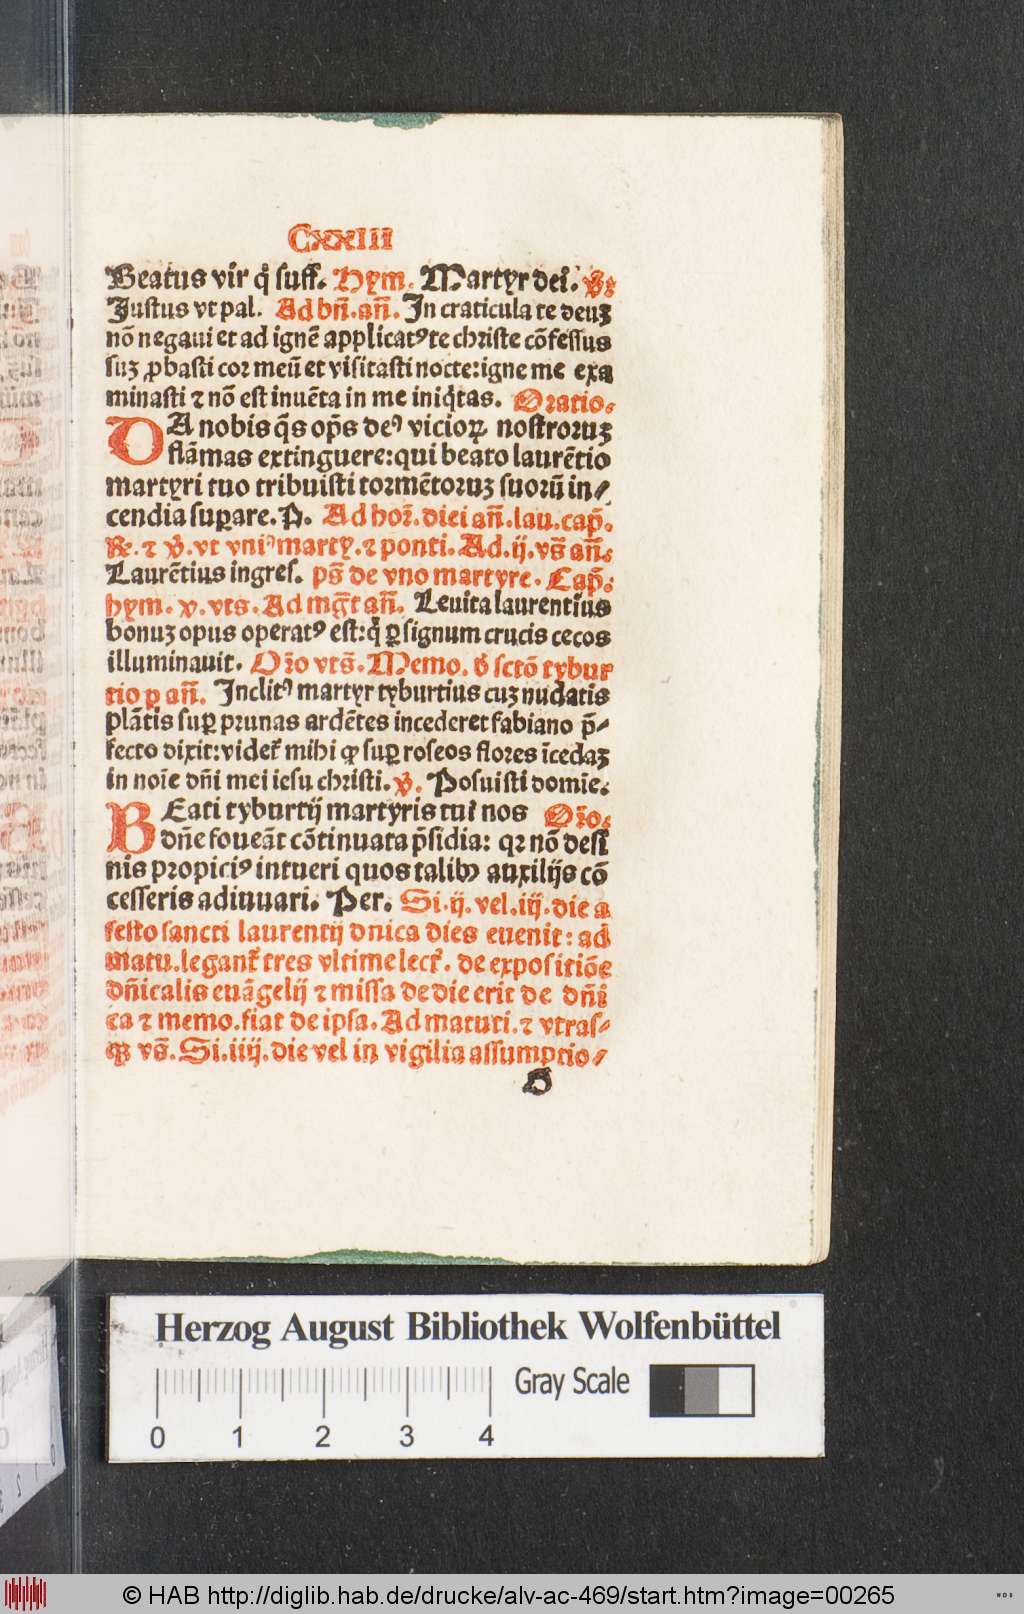 CxxIII
Beatus vir q̇ suff. Hym. Martyr dei. ꝟ:
Justus vt pal. Ad bn̄. an̄. In craticula te deuꝫ
nō negaui et ad ignē applicatꝰ te christe cōfessus
suꝫ ꝓbasti cor meū et visitasti nocte: igne me exa
minasti ⁊ nō est inuēta in me iniq̇tas. Oratio.
DA nobis q̄s op̄s deꝰ vicioꝝ nostroruꝫ
flāmas extinguere: qui beato laurētio
martyri tuo tribuisti tormētoruꝫ suorū in/
cendia suꝑare. P. Ad hor̄. diei an̄. lau. cap̄.
℟. ⁊ ꝟ. vt vniꝰ marty. ⁊ ponti. Ad. ij. vs̄ an̄.
Laurētius ingres. ps̄ de vno martyre. Cap̄.
hym. ꝟ. vts. Ad mḡt an̄. Leuita laurentius
bonuꝫ opus operatꝰ est: q̇ ꝑ signum crucis cecos
illuminauit. Or̄o vts̄. Memo. ð sctō tybur
tio p an̄. Inclitꝰ martyr tyburtius cuꝫ nudatis
plātis suꝑ prunas ardētes incederet fabiano p̄/
fecto dixit: videt᷑ mihi ꝙ suꝑ roseos flores īcedaꝫ
in noīe dn̄i mei iesu christi. ꝟ. Posuisti domīe.
BEati tyburtij martyris tui nos Or̄o.
dn̄e foueāt cōtinuata p̄sidia: qꝛ nō desī
nis propiciꝰ intueri quos talibꝰ auxilijs cō
cesseris adiuuari. Per. Si. ij. vel. iij. die a
festo sancti laurentij dnica dies euenit: ad
matu. legant᷑ tres vltime lect᷑. de expositiōe
dn̄icalis euāgelij ⁊ missa de die erit de dn̄i
ca ⁊ memo. fiat de ipsa. Ad maturi. ⁊ vtras/
ꝙ vs̄. Si. iiij. die vel in vigilia assumptio/
Herzog August Bibliothek Wolfenbüttel
Gray Scale
0 1 2 3 4
© HAB http://diglib.hab.de/drucke/alv-ac-469/start.htm?image=00265